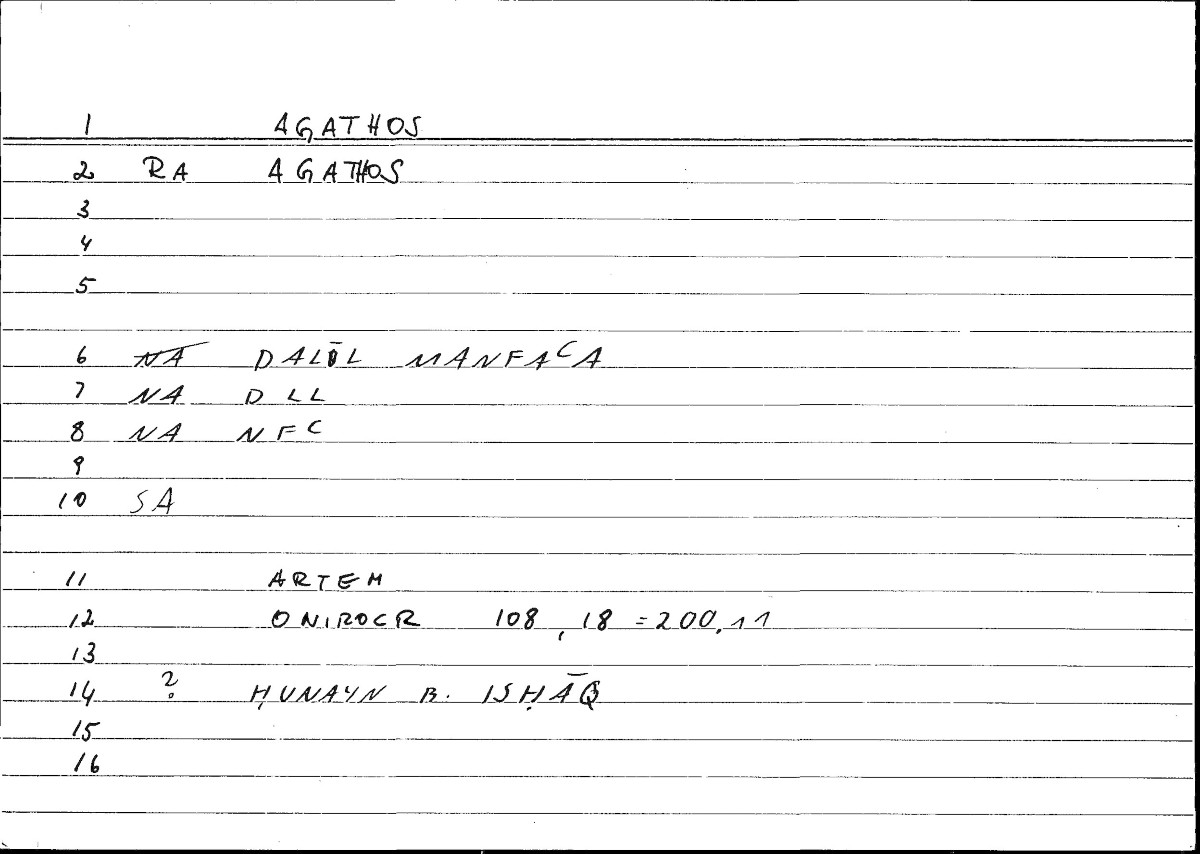 1 AGATHOS
2 RA AGATHOS
3
4
5
6 NA DALĪL MANFAᶜA
7 NA DLL
8 NA NFᶜ
9
10 SA
11 ARTEM
12 ONIROCR 108,18 = 200,11
13
14 ? ḤUNAYN B. ISḤĀQ
15
16